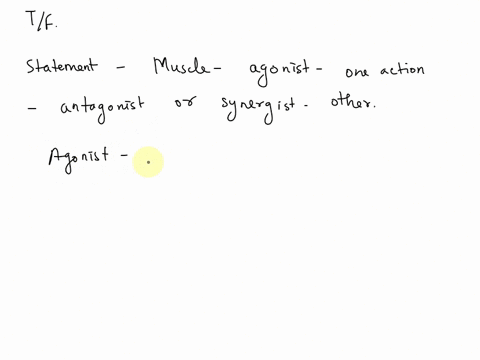 T/F.
Statement - Muscle - agonist - one action
- antagonist or synergist - other.
Agonist -